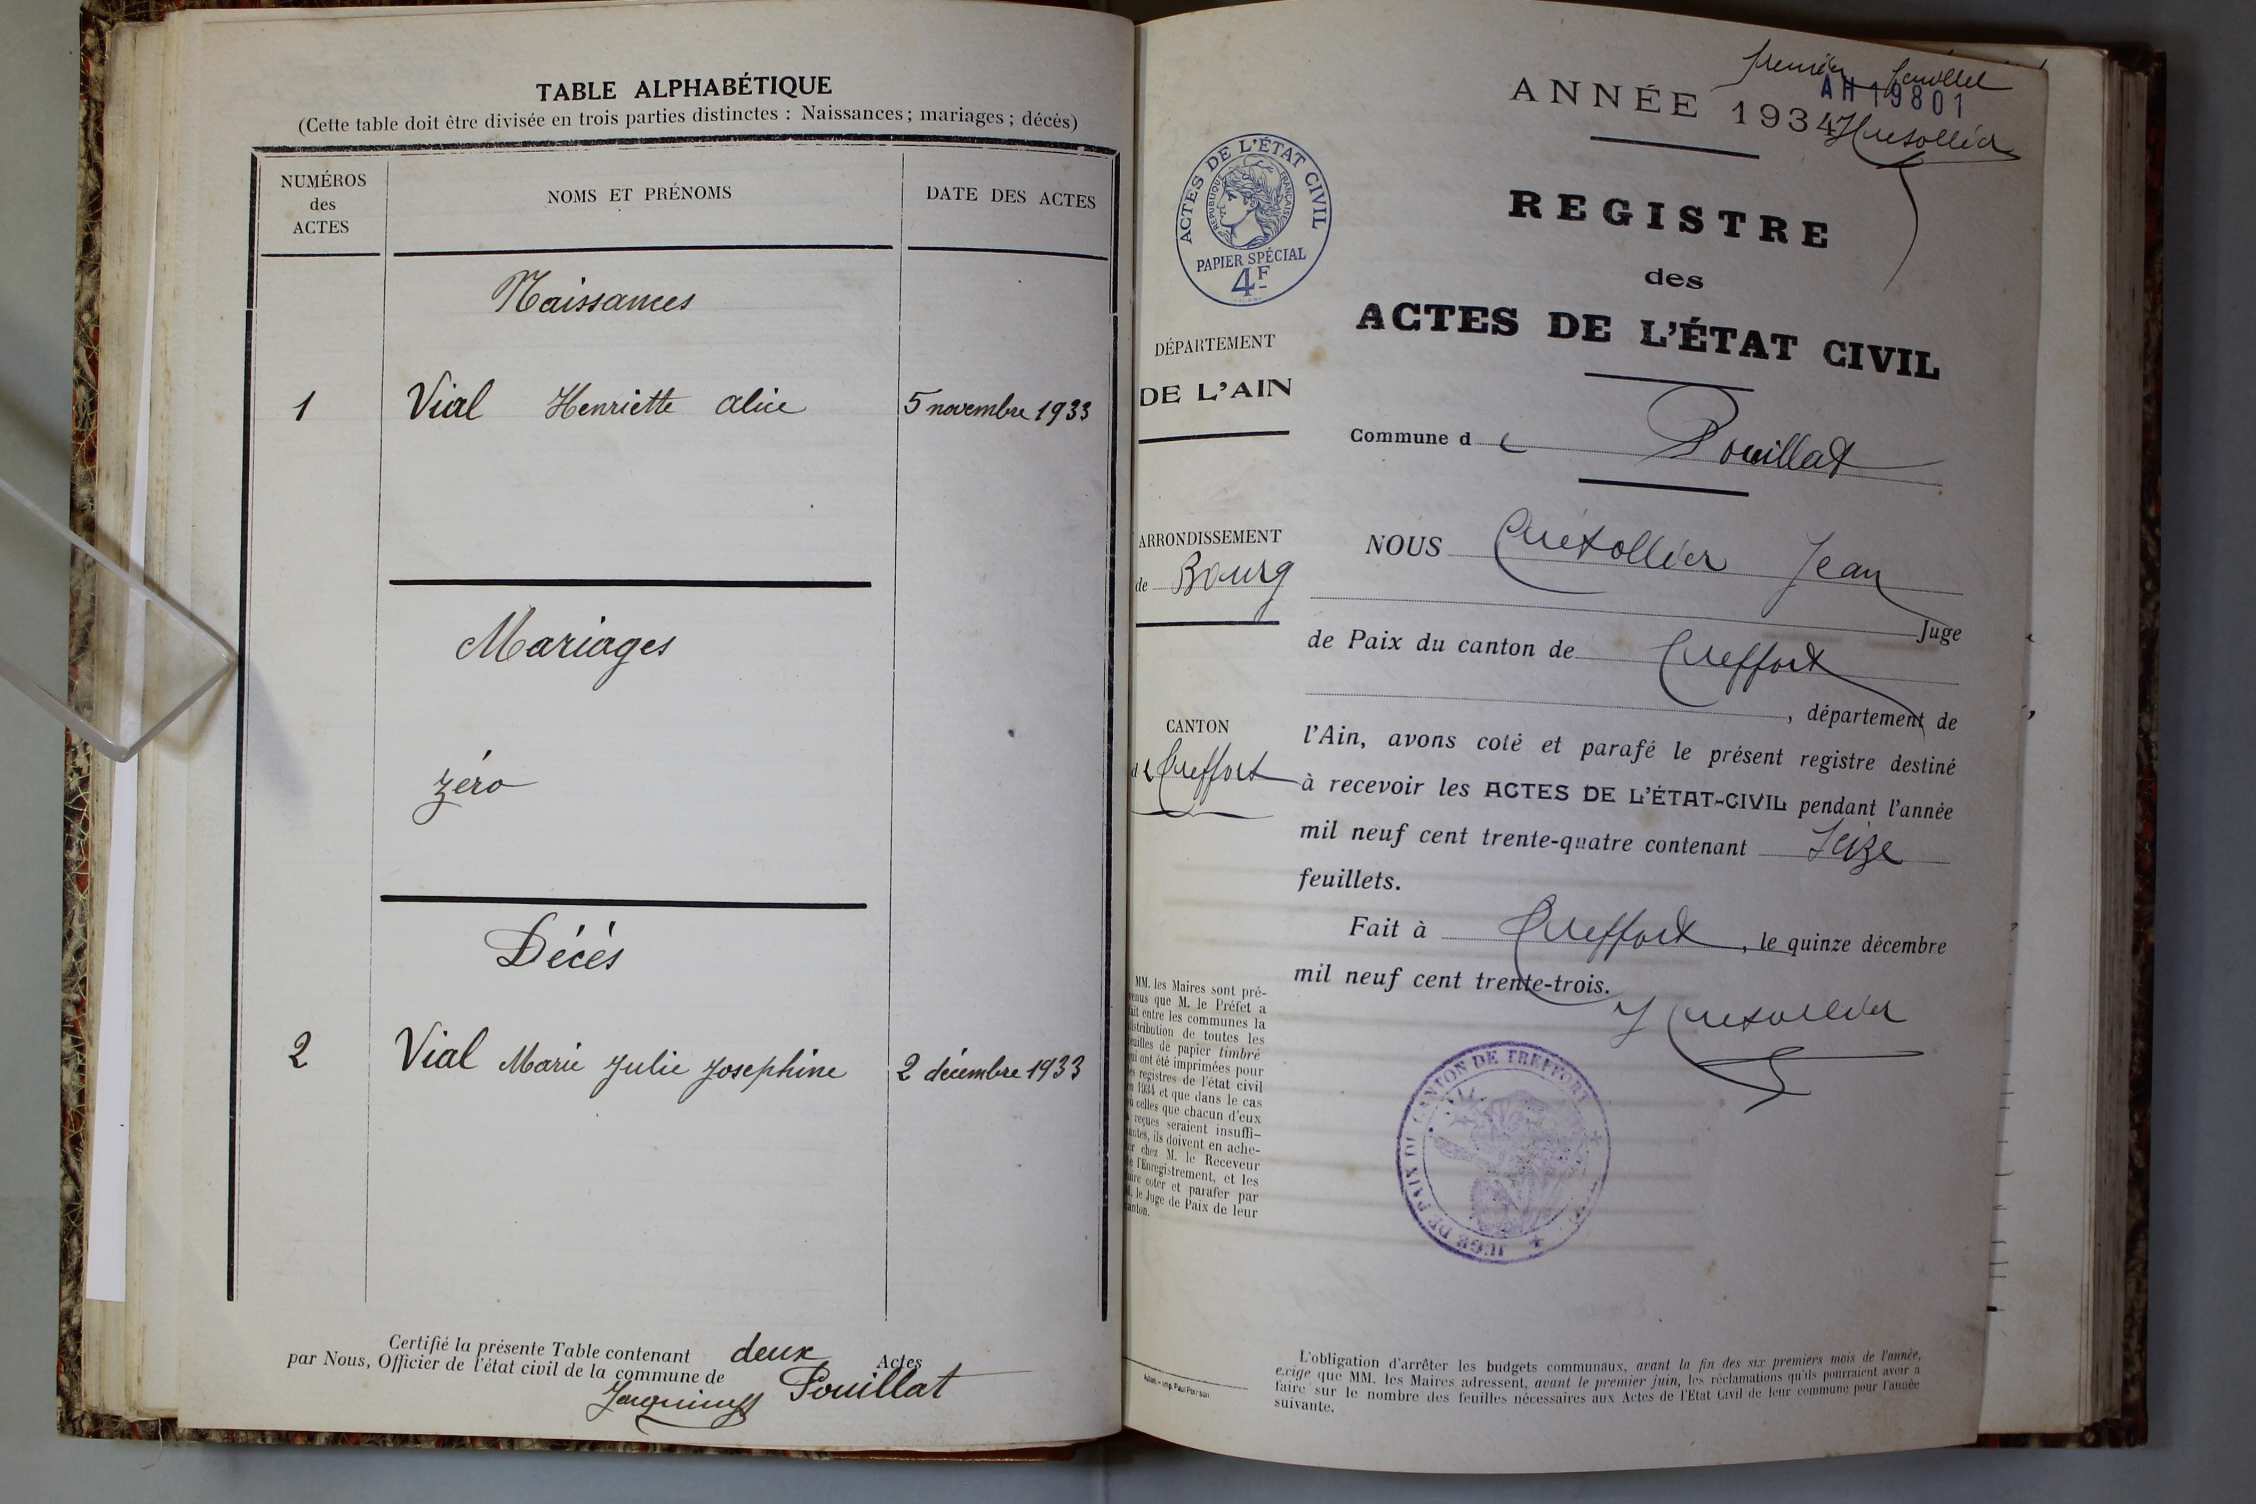 TABLE ALPHABÉTIQUE
(Cette table doit être divisée en trois parties distinctes : Naissances ; mariages ; décès)
NUMÉROS
des
ACTES
NOMS ET PRÉNOMS
DATE DES ACTES
Naissances
1 Vial Henriette Alice 5 novembre 1933
Mariages
zéro
Décès
2 Vial Marie Julie Josephine 2 décembre 1933
Certifié la présente Table contenant deux Actes
par Nous, Officier de l'état civil de la commune de Pouillat
premier feuillet
AH 19801
ANNÉE 1934
ACTES DE L'ÉTAT CIVIL
RÉPUBLIQUE FRANÇAISE
PAPIER SPÉCIAL
4F
REGISTRE
des
ACTES DE L'ÉTAT CIVIL
DÉPARTEMENT
DE L'AIN
Commune de Pouillat
ARRONDISSEMENT
de Bourg
NOUS Jean
Juge
de Paix du canton de Treffort
, département de
CANTON
de Treffort
l'Ain, avons coté et parafé le présent registre destiné
à recevoir les ACTES DE L'ÉTAT-CIVIL pendant l'année
mil neuf cent trente-quatre contenant Seize
feuillets.
Fait à Treffort, le quinze décembre
mil neuf cent trente-trois.
MM. les Maires sont pré-
venus que M. le Préfet a
fait entre les communes la
distribution de toutes les
feuilles de papier timbré
qui ont été imprimées pour
les registres de l'état civil
en 1934 et que dans le cas
où celles que chacun d'eux
a reçues seraient insuffi-
santes, ils doivent en ache-
ter chez M. le Receveur
de l'Enregistrement, et les
faire coter et parafer par
M. le Juge de Paix de leur
canton.
JUGE DE PAIX DU CANTON DE TREFFORT
L'obligation d'arrêter les budgets communaux, avant la fin des six premiers mois de l'année,
exige que MM. les Maires adressent, avant le premier juin, les réclamations qu'ils pourraient avoir à
faire sur le nombre des feuilles nécessaires aux Actes de l'Etat Civil de leur commune pour l'année
suivante.